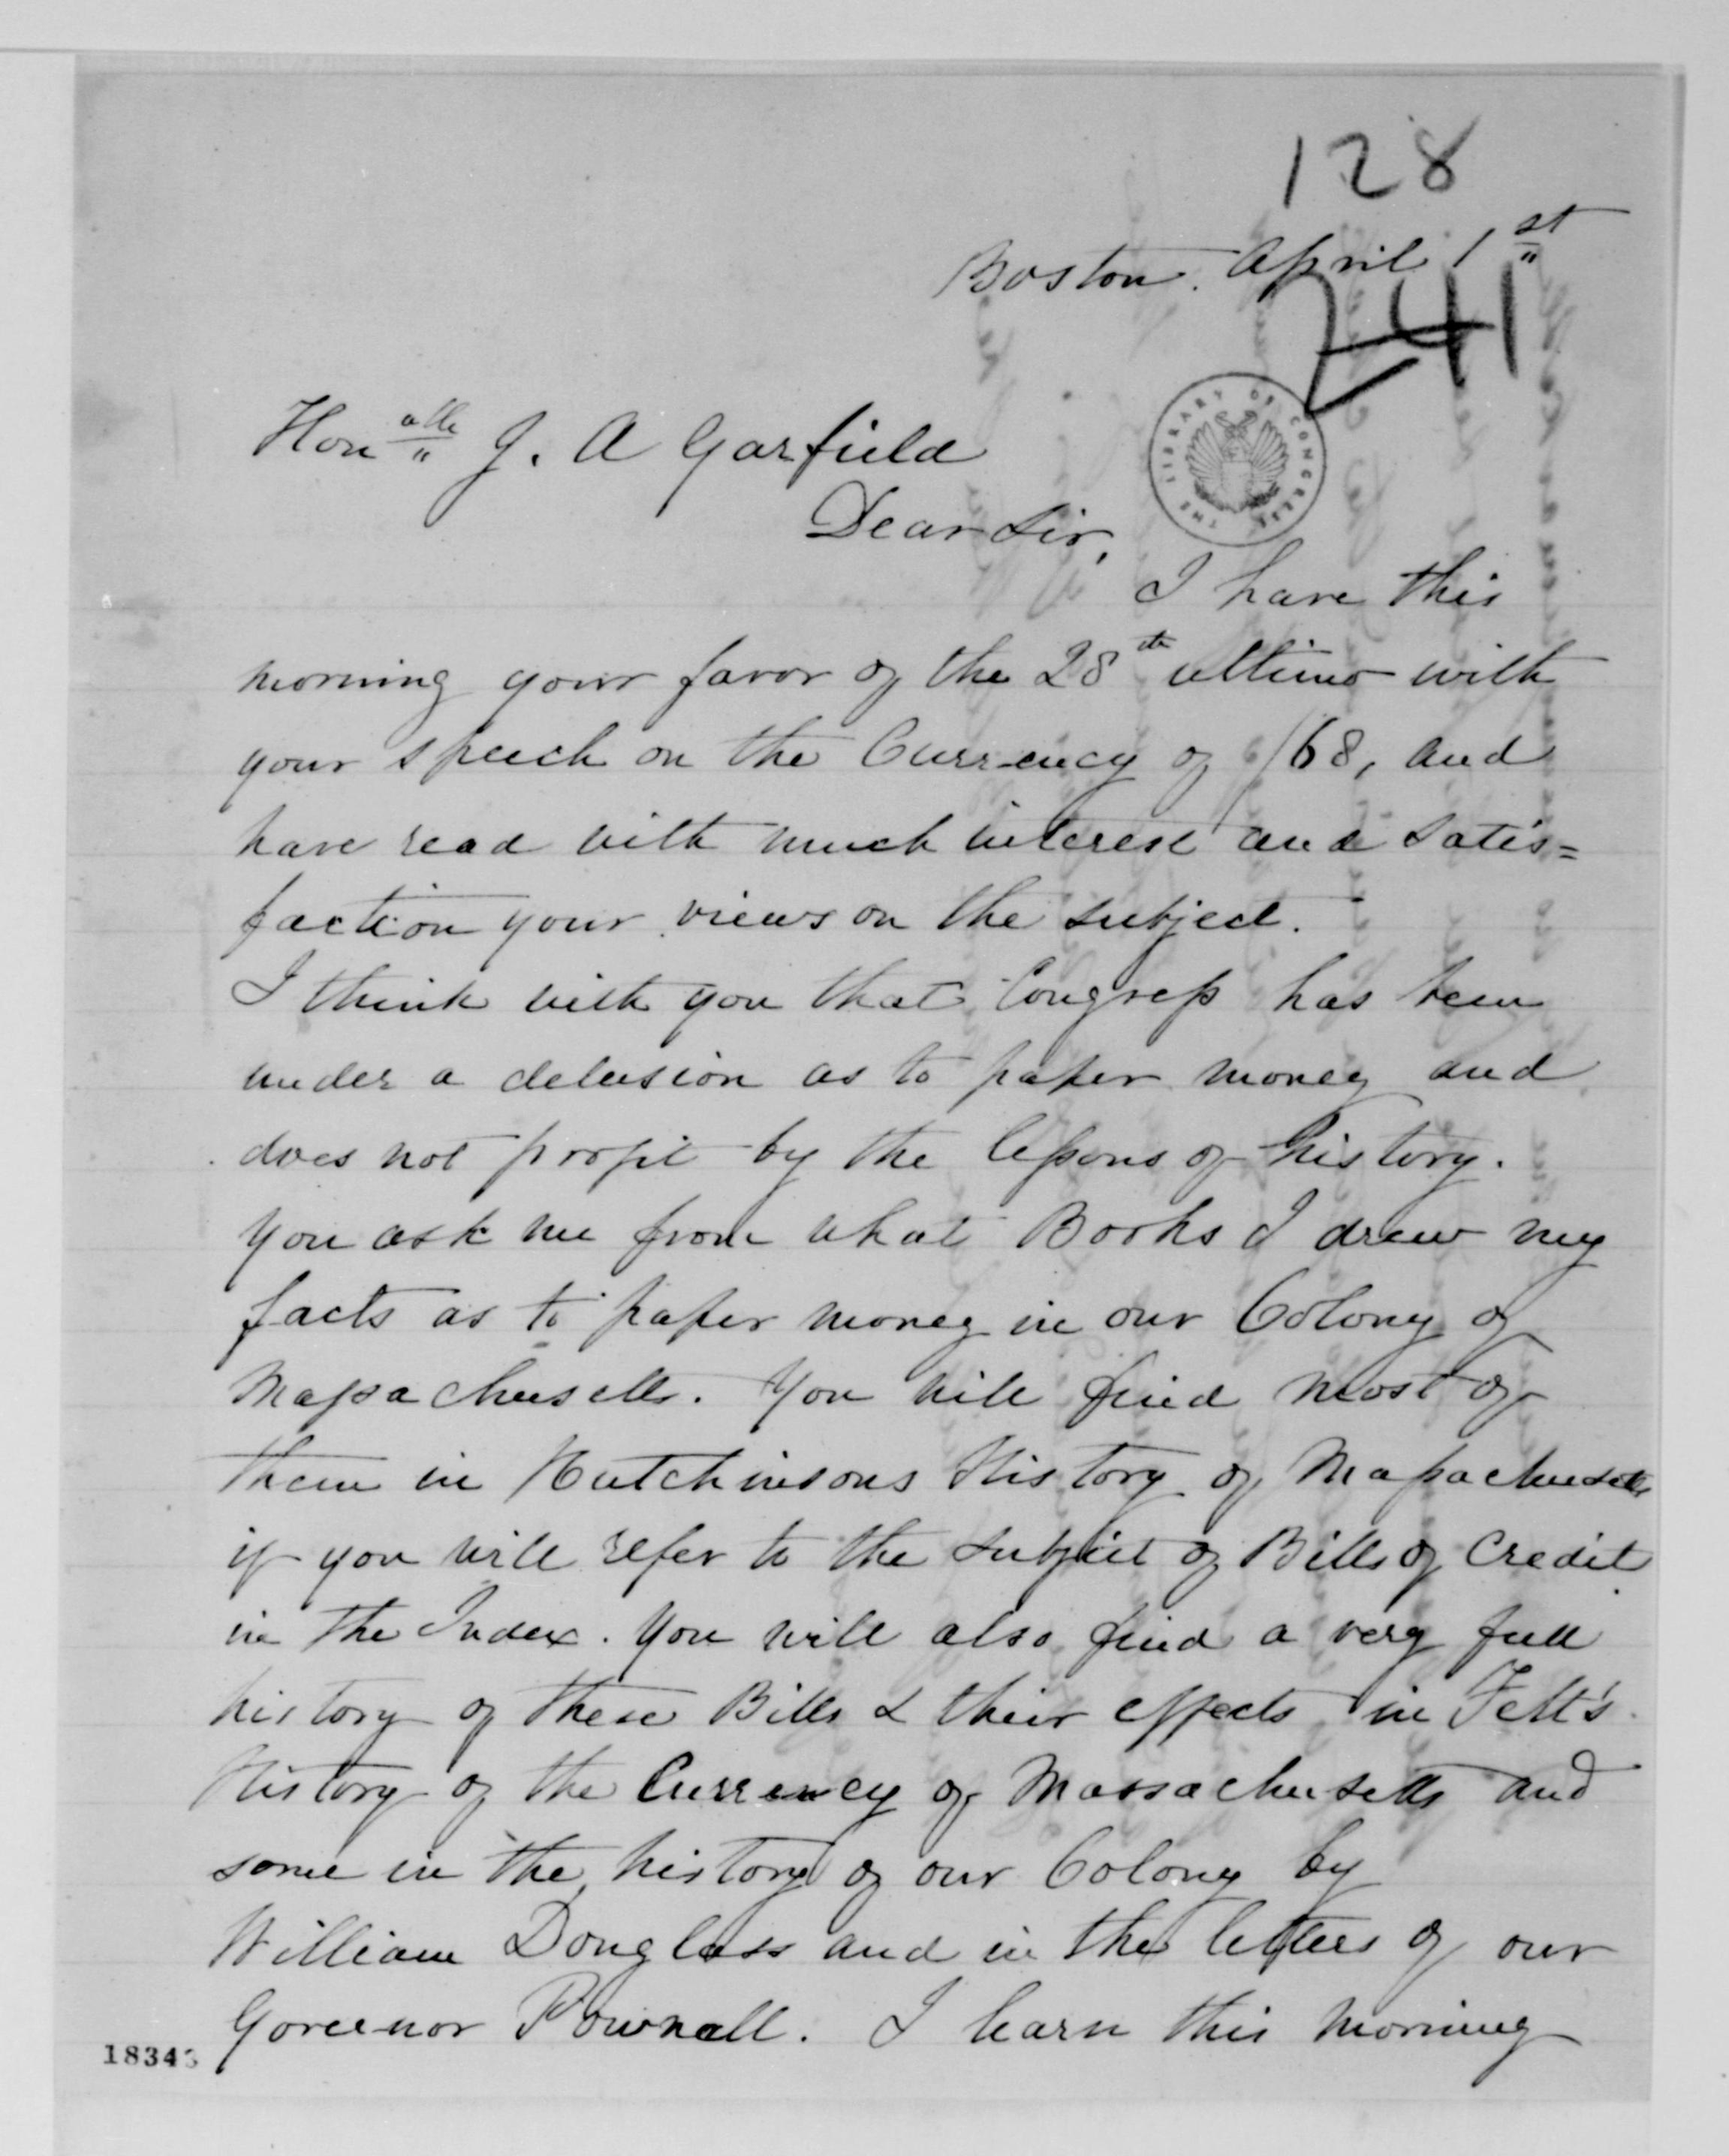 128
Boston. April 1st
241
Honable J. A Garfield
THE LIBRARY OF CONGRESS
Dear Sir,
I have this
morning your favor of the 28th ultimo with
your speech on the Currency of /68, and
have read with much interest and satis=
faction your views on the subject.
I think with you that Congress has been
under a delusion as to paper money and
does not profit by the lessons of history.
You ask me from what Books I drew my
facts as to paper money in our Colony of
Massachusetts. You will find most of
them in Hutchinsons History of Massachusetts
if you will refer to the subject of Bills of Credit
in the Index. You will also find a very full
history of these Bills & their effects in Felt's
History of the Currency of Massachusetts and
some in the history of our Colony by
William Douglass and in the letters of our
Governor Pownall. I learn this morning
18343